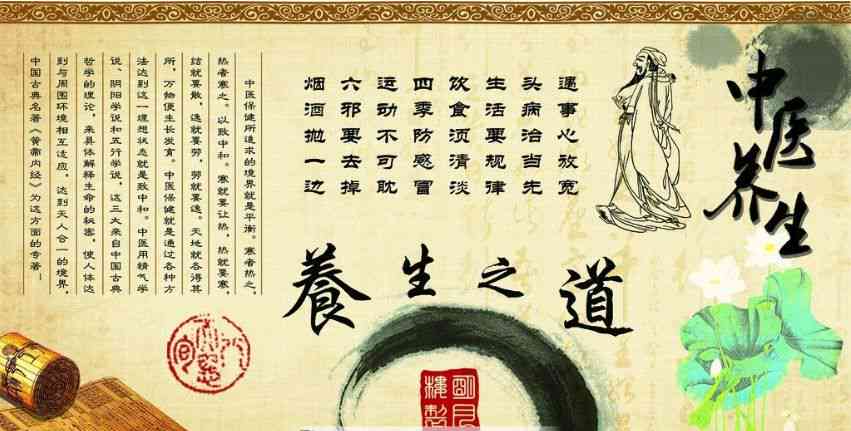 中医养生
遇事心放宽
头病治当先
生活要规律
饮食须清淡
四季防感冒
运动不可耽
六邪要去掉
烟酒抛一边
養生之道
中医保健所追求的境界就是平衡。寒者热之，
热者寒之。以致中和。寒就要让热，热就要寒，
结就要散，逸就要劳，劳就要逸。天地就各得其
所，万物便生长发育。中医保健就是通过各种方
法达到这一理想状态就是致中和。中医用精气学
说、阴阳学说和五行学说，这三大来自中国古典
哲学的理论，来具体解释生命的秘密，使人体达
到与周围环境相互适应，达到天人合一的境界，
中国古典名著《黄帝内经》为这方面的专著…